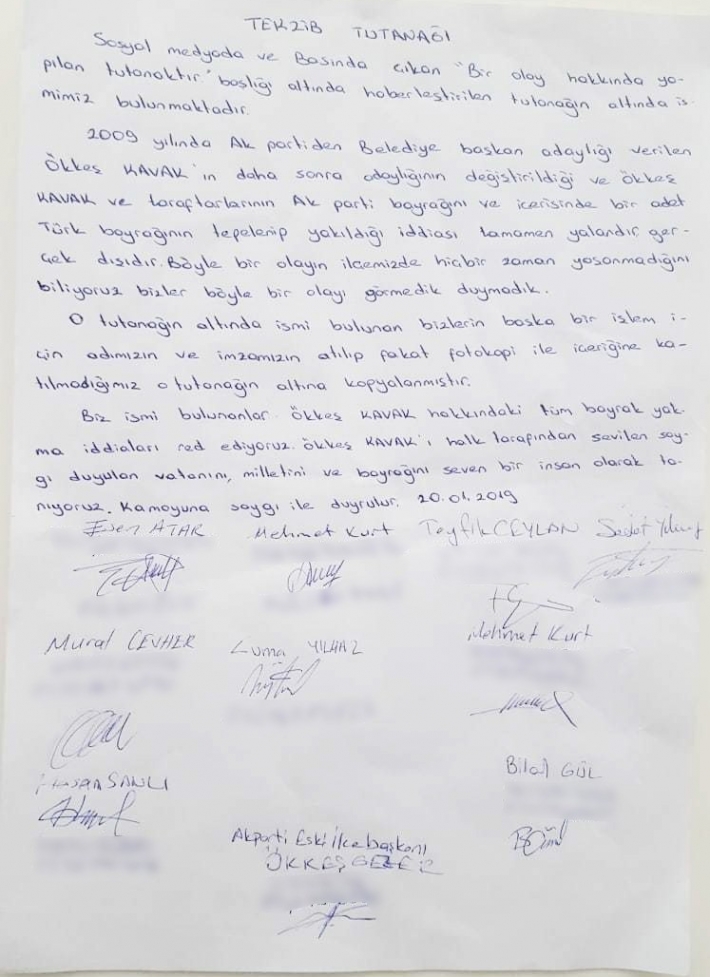 TEKZİB TUTANAĞI
Sosyal medyada ve Basında çıkan "Bir olay hakkında ya-
pılan tutanaktır" başlığı altında haberleştirilen tutanağın altında is-
mimiz bulunmaktadır.
2009 yılında Ak partiden Belediye başkan adaylığı verilen
Ökkeş KAVAK'ın daha sonra adaylığının değiştirildiği ve Ökkeş
KAVAK ve taraftarlarının Ak parti bayrağını ve içerisinde bir adet
Türk bayrağının tepelenip yakıldığı iddiası tamamen yalandır, ger-
çek dışıdır. Böyle bir olayın ilçemizde hiçbir zaman yaşanmadığını
biliyoruz bizler böyle bir olayı görmedik duymadık.
O tutanağın altında ismi bulunan bizlerin başka bir işlem i-
çin adımızın ve imzamızın atılıp fakat fotokopi ile içeriğine ka-
tılmadığımız o tutanağın altına kopyalanmıştır.
Biz ismi bulunanlar Ökkeş KAVAK hakkındaki tüm bayrak yak-
ma iddiaları red ediyoruz. Ökkeş KAVAK'ı halk tarafından sevilen say-
gı duyulan vatanını, milletini ve bayrağını seven bir insan olarak ta-
nıyoruz. Kamoyuna saygı ile duyrulur. 20.01.2019
Esen ATAR Mehmet Kurt Teyfik CEYLAN Sedat Yılmaz
Murat CEVHER Cuma YILMAZ Mehmet Kurt
Hasan SANLI Bilal GÜL
Akparti Eski İlçe başkanı
ÖKKEŞ GEZER